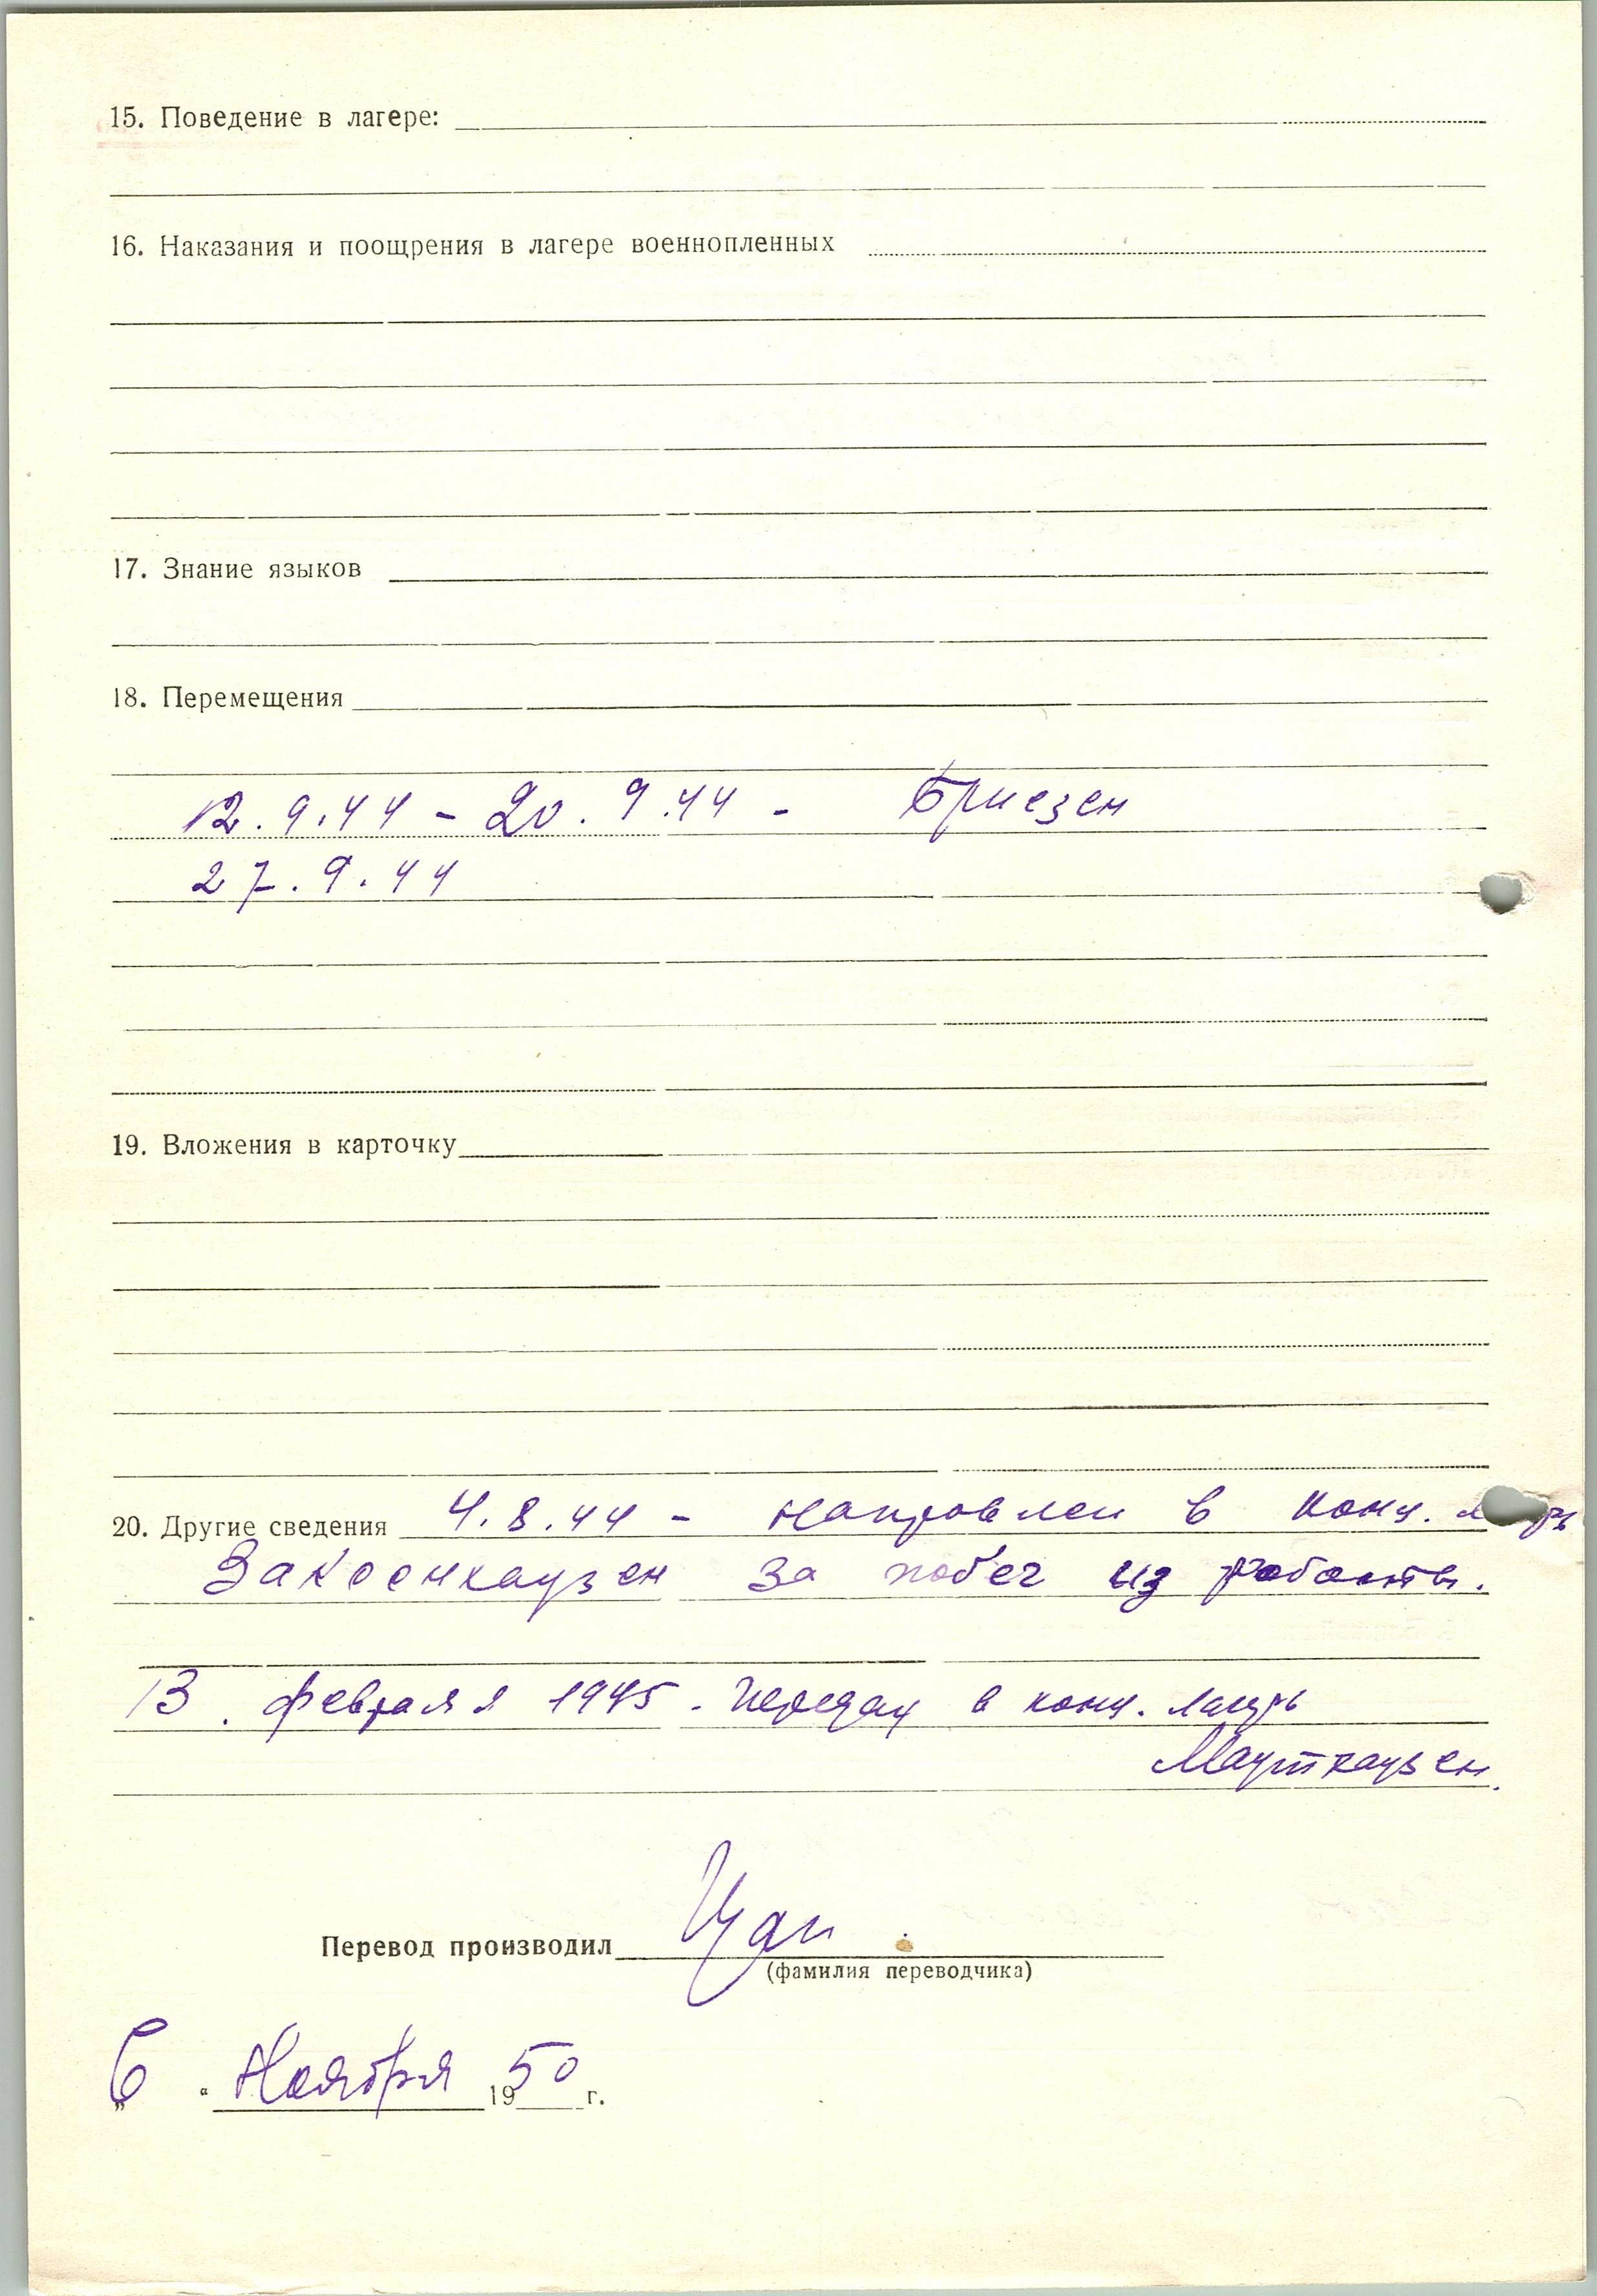 15. Поведение в лагере:
16. Наказания и поощрения в лагере военнопленных
17. Знание языков
18. Перемещения
12.9.44 - 20.9.44 - Бриезен
27.9.44
19. Вложения в карточку
20. Другие сведения 4.8.44 - направлен в конц.
Заксенхаузен за побег из работы.
13. февраля 1945 - передан в конц. лагерь
Маутхаузен.
Перевод производил
(фамилия переводчика)
„6“ Ноября 1950 г.